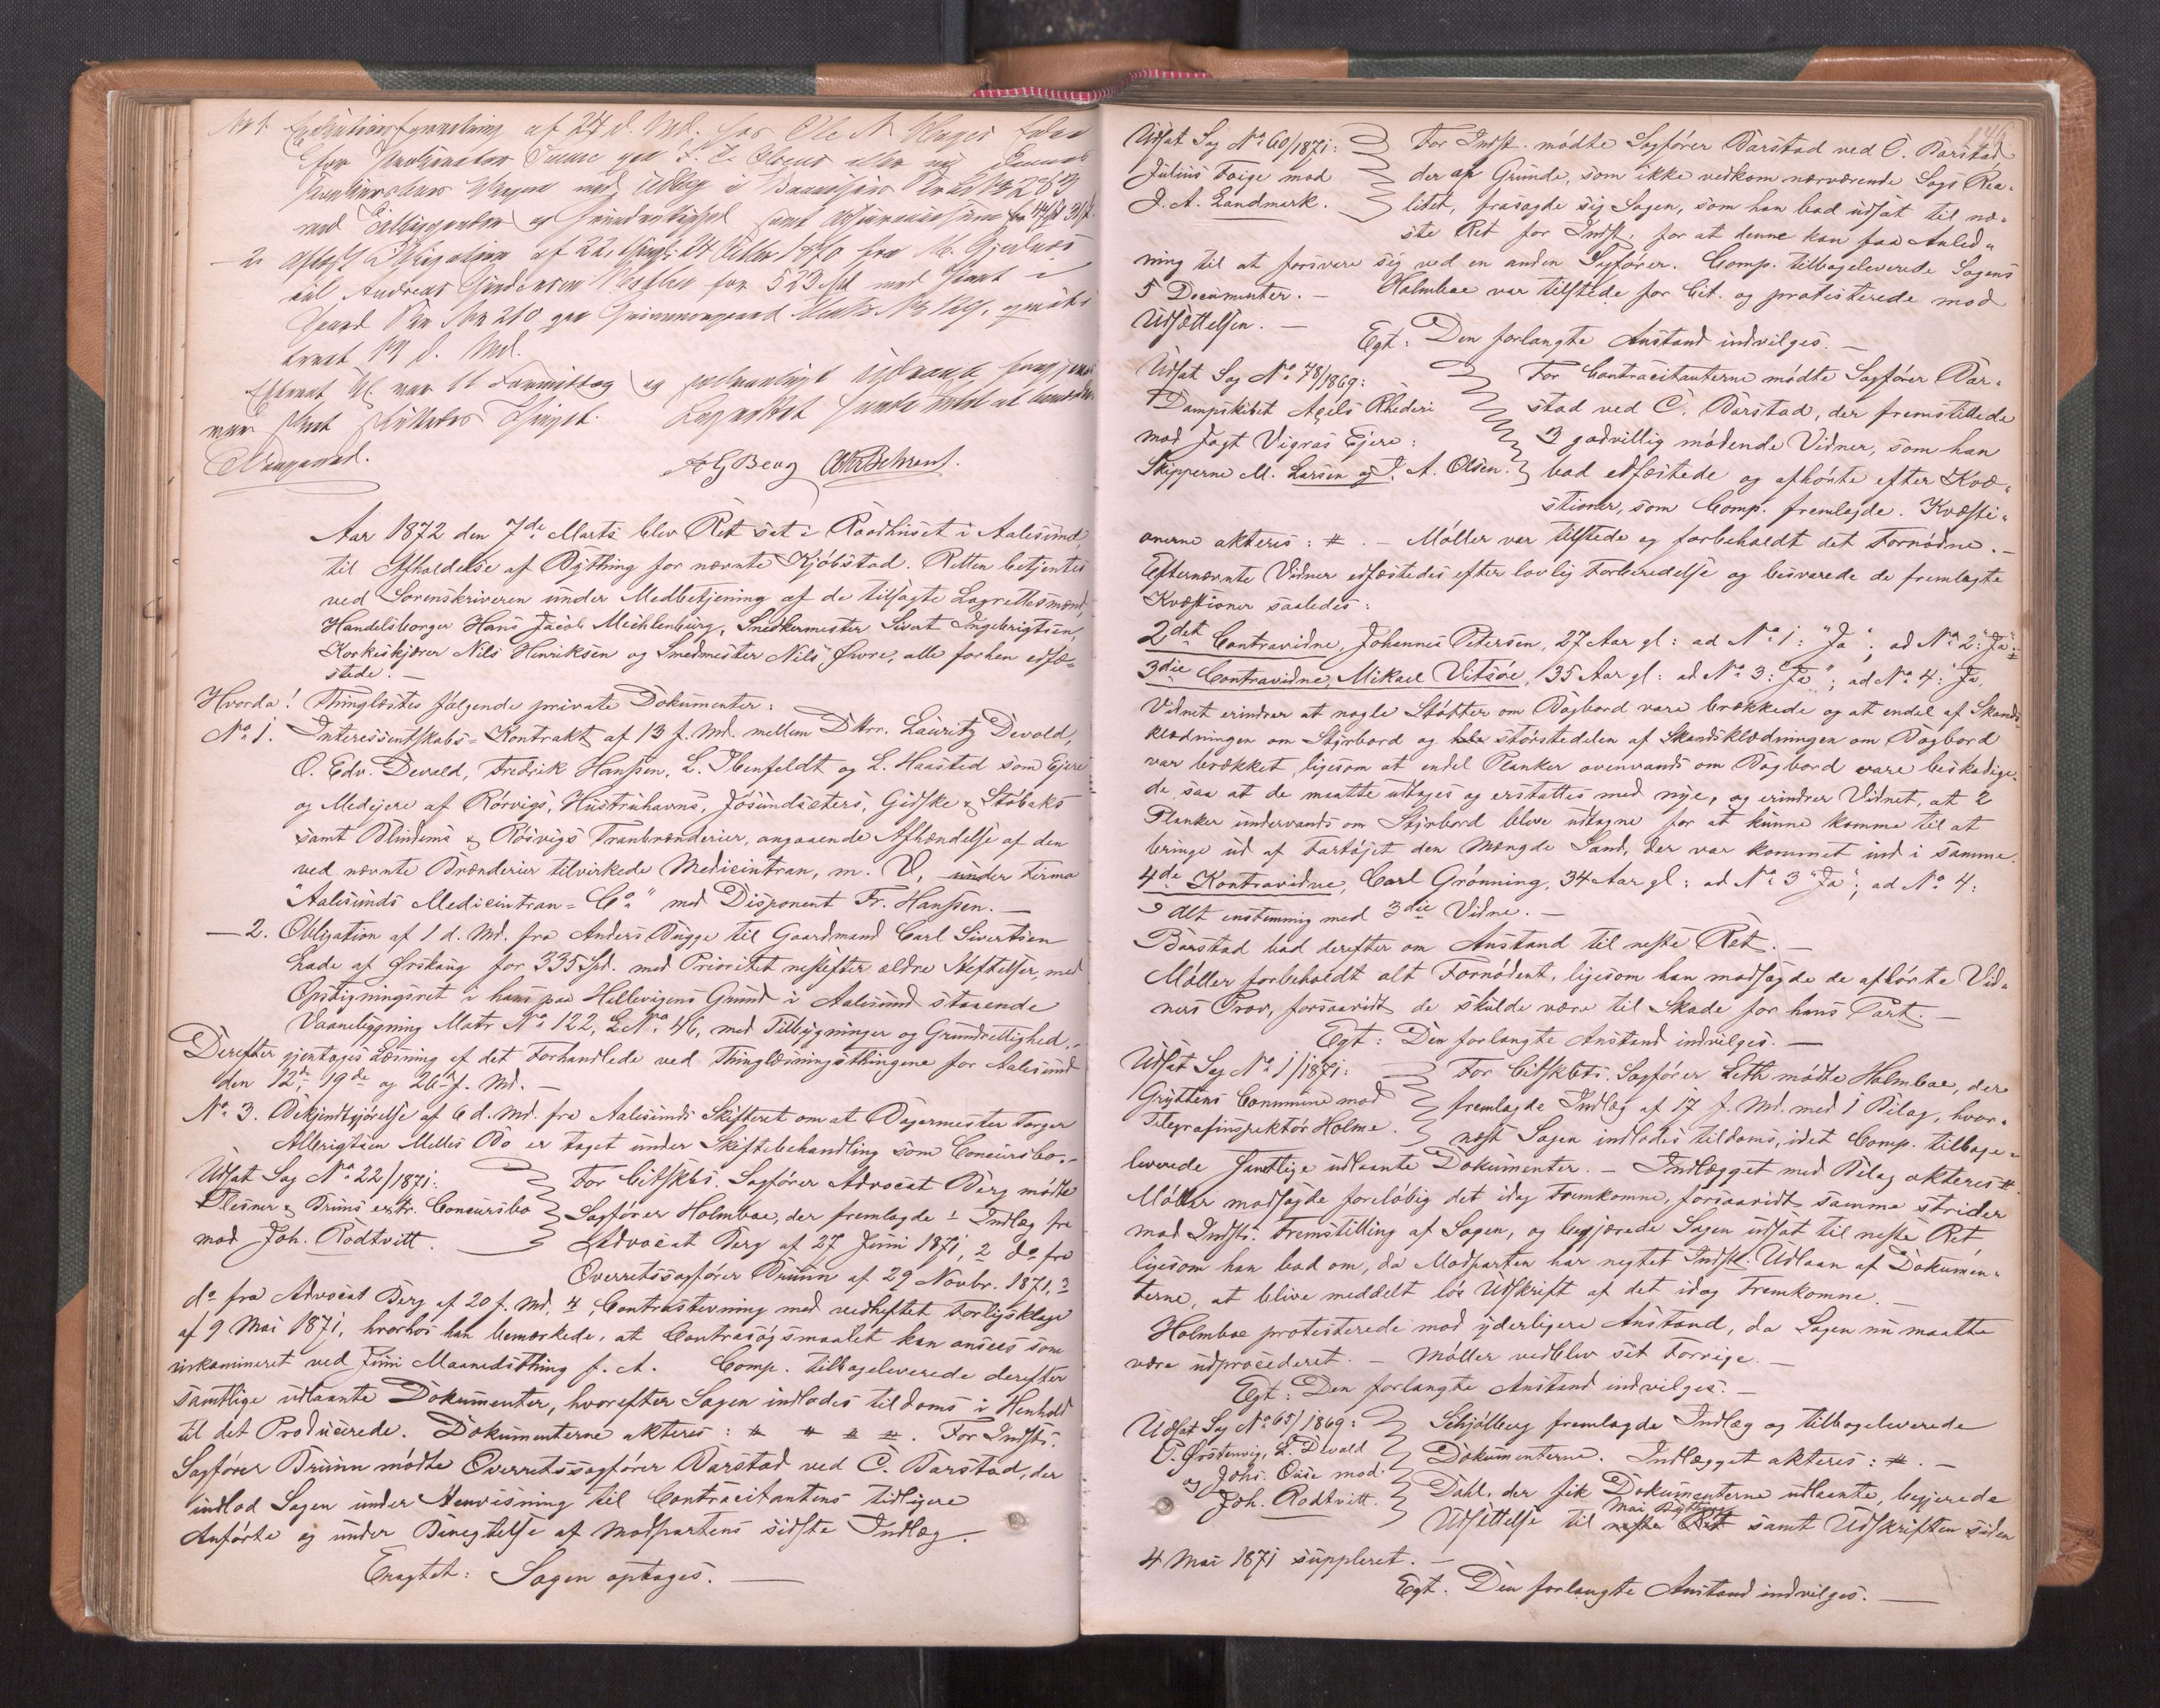 No 1. Executionsforretning af 24 d. Md. hos Ole
med Tilliggender og
- 2. Obligation af 22, 24 Octbr 1870 fra
til Andreas for 523 Spd med Pant i
d. Md.
Kl. var 11 Formiddag og
Thinget.
A G Berg Behrens.
Aar 1872 den 7de Marts blev Ret sat i Raadhuset i Aalesund
til Afholdelse af Bything for nævnte Kjøbstad. Retten betjentes
ved Sorenskriveren under Medbetjening af de tilsagte Lagrettesmænd,
Handelsborger Hans Jacob Mechlenburg, Snedkermester Sivert Ingebrigtsen,
Korkskjærer Nils Henriksen og Smedmester Nils Øwre, alle forhen edfæ-
stede. —
Hvorda! Thinglæstes følgende private Dokumenter:
No 1. Interessentskabs-Kontrakt af 13 f. Md. mellem DHrr. Lauritz Devold,
O. Edv. Devold, Fredrik Hanssen, L. Ibenfeldt og L. Haasted som Ejere
og Medejere af Rørvigs, Hustruhavns, Jøsundsæters, Gidske & Støbaks
samt Blindems & Røsvigs Tranbrænderier, angaaende Afhændelse af den
ved nævnte Brænderier tilvirkede Medicintran, m. V., under Firma
"Aalesunds Medicintran-Co" med Disponent Fr. Hanssen. —
— 2. Obligation af 1 d. Md. fra Anders Bugge til Gaardmand Carl Sivertsen
Lade af Ørskoug for 335 Spd. med Prioritet nestefter ældre Heftelser, med
Opstigningsret i hans paa Hellevigens Grund i Aalesund staaende
Vaaneliggning Matr No 122, L No 46, med Tilbygninger og Grundrettighed. —
Derefter gjentages Læsning af det Forhandlede ved Thinglæsningsthingene for Aalesund
den 12te, 19de og 26de f. Md. —
No 3. Bekjendtgjørelse af 6 d. Md. fra Aalesunds Skifteret om at Bagermester Torger
Albrigtsen Melles Bo er taget under Skiftebehandling som Concursbo. —
Udsat Sag No 22/1871: For Citskbs. Sagfører Advocat Berg mødte
Plesner & Bruns extr. Concursbo Sagfører Holmboe, der fremlagde 1 Indlæg fra
mod Joh. Rødtvitt. Advocat Berg af 27 Juni 1871, 2 do fra
Overretssagfører Brunn af 29 Novbr. 1871, 3
do fra Advocat Berg af 20 f. Md. 4 Contrastevning med vedheftet Forligsklage
af 9 Mai 1871, hvorhos han bemærkede, at Contrasøgsmaalet kan ansees som
inkamineret ved Juni Maanedsthing f. A. Comp. tilbageleverede derefter
samtlige udlaante Dokumenter, hvorefter Sagen indlodes til doms i Henhold
til det Producerede. Dokumenterne akteres: # # # #. For Indsts.
Sagfører Brunn mødte Overretssagfører Barstad ved C. Barstad, der
indlod Sagen under Henvisning til Contracitantens tidligere
Anførte og under Benegtelse af Modpartens sidste Indlæg.
Eragtet: Sagen optages. —
146
Udsat Sag No 60/1871: For Indst. mødte Sagfører Barstad ved C. Barstad,
Julius Foige mod der af Grunde, som ikke vedkom nærværende Sags Rea-
J. A. Landmark. litet, frasagde sig Sagen, som han bad udsat til næ-
ste Ret for Indst. for at denne kan faa Anled-
ning til at forsvare sig ved en anden Sagfører. Comp. tilbageleverede Sagens
5 Documenter. — Holmboe var tilstede for Cit. og protesterede mod
Udsættelsen. —
Egt: Den forlangte Anstand indvilges. —
Udsat Sag No 78/1869: For Contracitanterne mødte Sagfører Bar-
Dampskibet Ægils Rhederi stad ved C. Barstad, der fremstillede
mod Jagt Vigras Ejere: 3 godvillig mødende Vidner, som han
Skipperne M. Larsen og J. A. Olsen. bad edfæstede og afhørte efter Kvæ-
stioner, som Comp. fremlagde. Kvæsti-
onerne akteres: #. — Møller var tilstede og forbeholdt det Fornødne. —
Efternævnte Vidner edfæstedes efter lovlig Forberedelse og besvarede de fremlagte
Kvæstioner saaledes:
2det Contravidne, Johannes Petersen, 27 Aar gl: ad No 1: "Ja"; ad No 2: "Ja".
3die Contravidne, Mikael Vitsøe, 35 Aar gl: ad No 3: "Ja"; ad No 4: Ja,
Vidnet erindrer at nogle Støtter om Bagbord vare brækkede og at endel af Skands-
klædningen om Styrbord og hele størstedelen af Skandsklædningen om Bagbord
var brækket, ligesom at endel Planker ovenvands om Bagbord vare beskadige-
de saa at de maatte udtages og erstattes med nye, og erindrer Vidnet, at 2
Planker undervands om Styrbord bleve udtagne for at kunne komme til at
bringe ud af Fartøjet den Mængde Sand, der var kommet ind i samme.
4de Kontravidne, Carl Grønning, 34 Aar gl: ad No 3 "Ja"; ad No 4:
I Alt enstemmig med 3die Vidne. —
Barstad bad derefter om Anstand til neste Ret. —
Møller forbeholdt alt Fornødent, ligesom han modsagde de afhørte Vid-
ners Prov, forsaavidt de skulde være til Skade for hans Part. —
Egt: Den forlangte Anstand indvilges. —
Udsat Sag No 1/1871: For Citskbts. Sagfører Leth mødte Holmboe, der
Gryttens Commune mod fremlagde Indlæg af 17 f. Md. med 1 Bilag, hvor-
Telegrafinspektør Holme. næst Sagen indlodes til doms, idet Comp. tilbage-
leverede samtlige udlaante Dokumenter. — Indlægget med Bilag akteres #.
Møller modsagde foreløbig det idag Fremkomne, forsaavidt samme strider
mod Indsts. Fremstilling af Sagen, og begjærede Sagen udsat til neste Ret,
ligesom han bad om, da Modparten har negtet Indst. Udlaan af Dokumen-
terne, at blive meddelt løs Udskrift af det idag Fremkomne. —
Holmboe protesterede mod yderligere Anstand, da Sagen nu maatte
være udprocederet. — Møller vedblev sit Forrige. —
Egt: Den forlangte Anstand indvilges. —
Udsat Sag No 65/1869: Schjølberg fremlagde Indlæg og tilbageleverede
P. Ørstenvig, L. Devold Dokumenterne. Indlægget akteres: #. —
og Johs. Ouse mod Dahl, der fik Dokumenterne udlaante, begjerede
Joh. Rødtvitt. Udsættelse til neste Ret Mai Bything samt Udskriften siden
4 Mai 1871 suppleret. —
Egt: Den forlangte Anstand indvilges. —